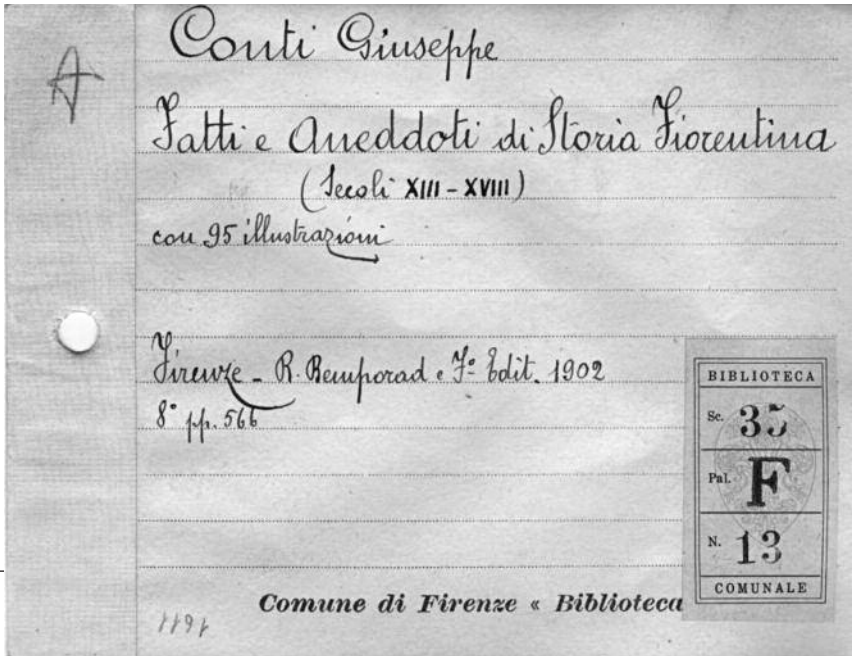 A
Conti Giuseppe
Fatti e Aneddoti di Storia Fiorentina
(Secoli XIII-XVIII)
con 95 illustrazioni
Firenze - R. Bemporad e F.º Edit. 1902
8º pp. 566
BIBLIOTECA
Sc. 35
Pal. F
N. 13
COMUNALE
Comune di Firenze « Biblioteca
1191